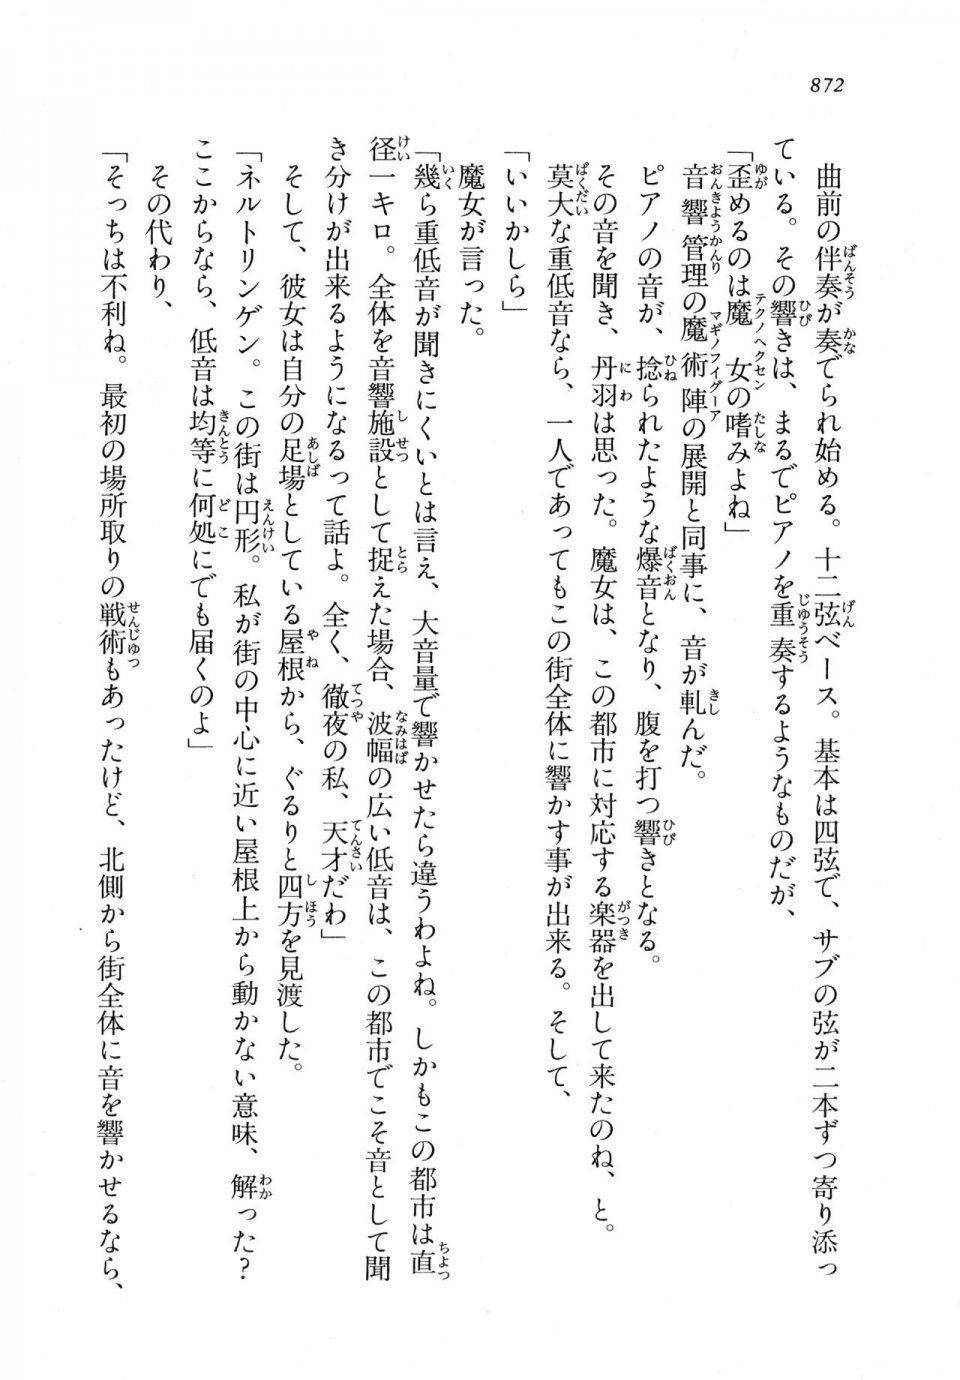 872
曲前の伴奏が奏でられ始める。十二弦ベース。基本は四弦で、サブの弦が二本ずつ寄り添っ
ている。その響きは、まるでピアノを重奏するようなものだが、
「歪めるのは魔女の嗜みよね」
音響管理の魔術陣の展開と同事に、音が軋んだ。
ピアノの音が、捻られたような爆音となり、腹を打つ響きとなる。
その音を聞き、丹羽は思った。魔女は、この都市に対応する楽器を出して来たのね、と。
莫大な重低音なら、一人であってもこの街全体に響かす事が出来る。そして、
「いいかしら」
魔女が言った。
「幾ら重低音が聞きにくいとは言え、大音量で響かせたら違うわよね。しかもこの都市は直
径一キロ。全体を音響施設として捉えた場合、波幅の広い低音は、この都市でこそ音として聞
き分けが出来るようになるって話よ。全く、徹夜の私、天才だわ」
そして、彼女は自分の足場としている屋根から、ぐるりと四方を見渡した。
「ネルトリンゲン。この街は円形。私が街の中心に近い屋根上から動かない意味、解った？
ここからなら、低音は均等に何処にでも届くのよ」
その代わり、
「そっちは不利ね。最初の場所取りの戦術もあったけど、北側から街全体に音を響かせるなら、